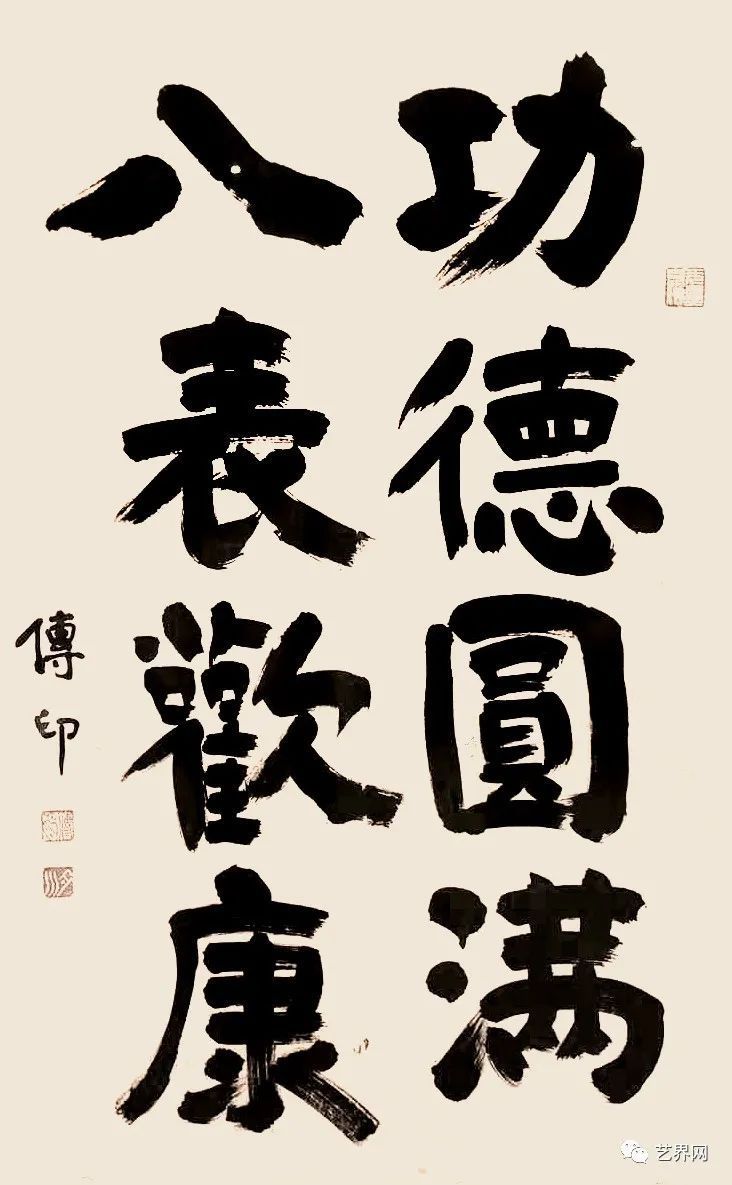 功德圓满
八表歡康
傳印
艺界网